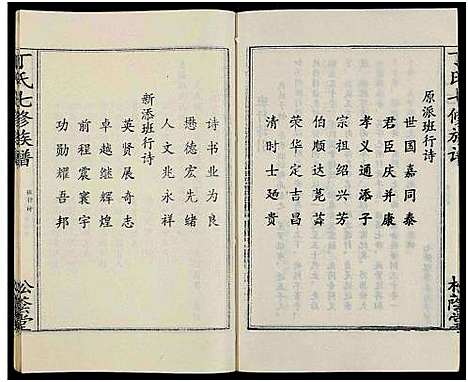 丁氏七修族谱
原派班行诗
世国嘉同泰
君臣庆并康
孝义通添子
宗祖绍兴芳
伯顺达
荣华定吉昌
清时士廼贵
松荫堂
诗书业为良
懋德宏先绪
人文兆永祥
新添班行诗
英贤展奇志
卓越继辉煌
前程震寰宇
功勋耀吾邦
丁氏七修族谱
班行诗
松荫堂